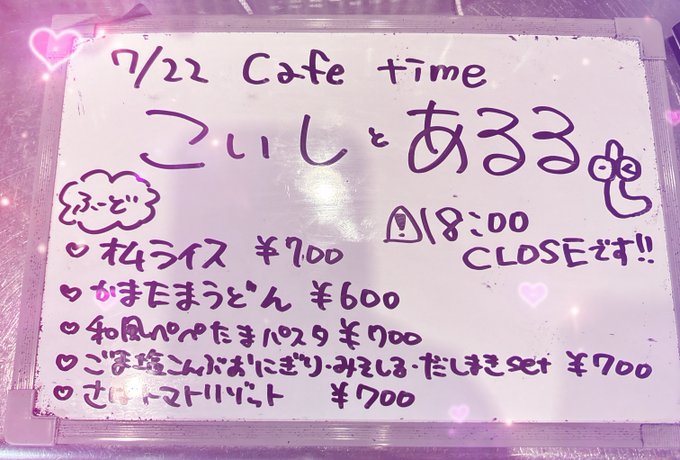 7/22 Cafe time
こいしとあるる
ふーど
⚠18:00
CLOSEです!!
♡オムライス ¥700
♡かまたまうどん ¥600
♡和風ペペたまパスタ ¥700
♡ごま塩こんぶおにぎり・みそしる・だしまきset ¥700
♡さばトマトリゾット ¥700